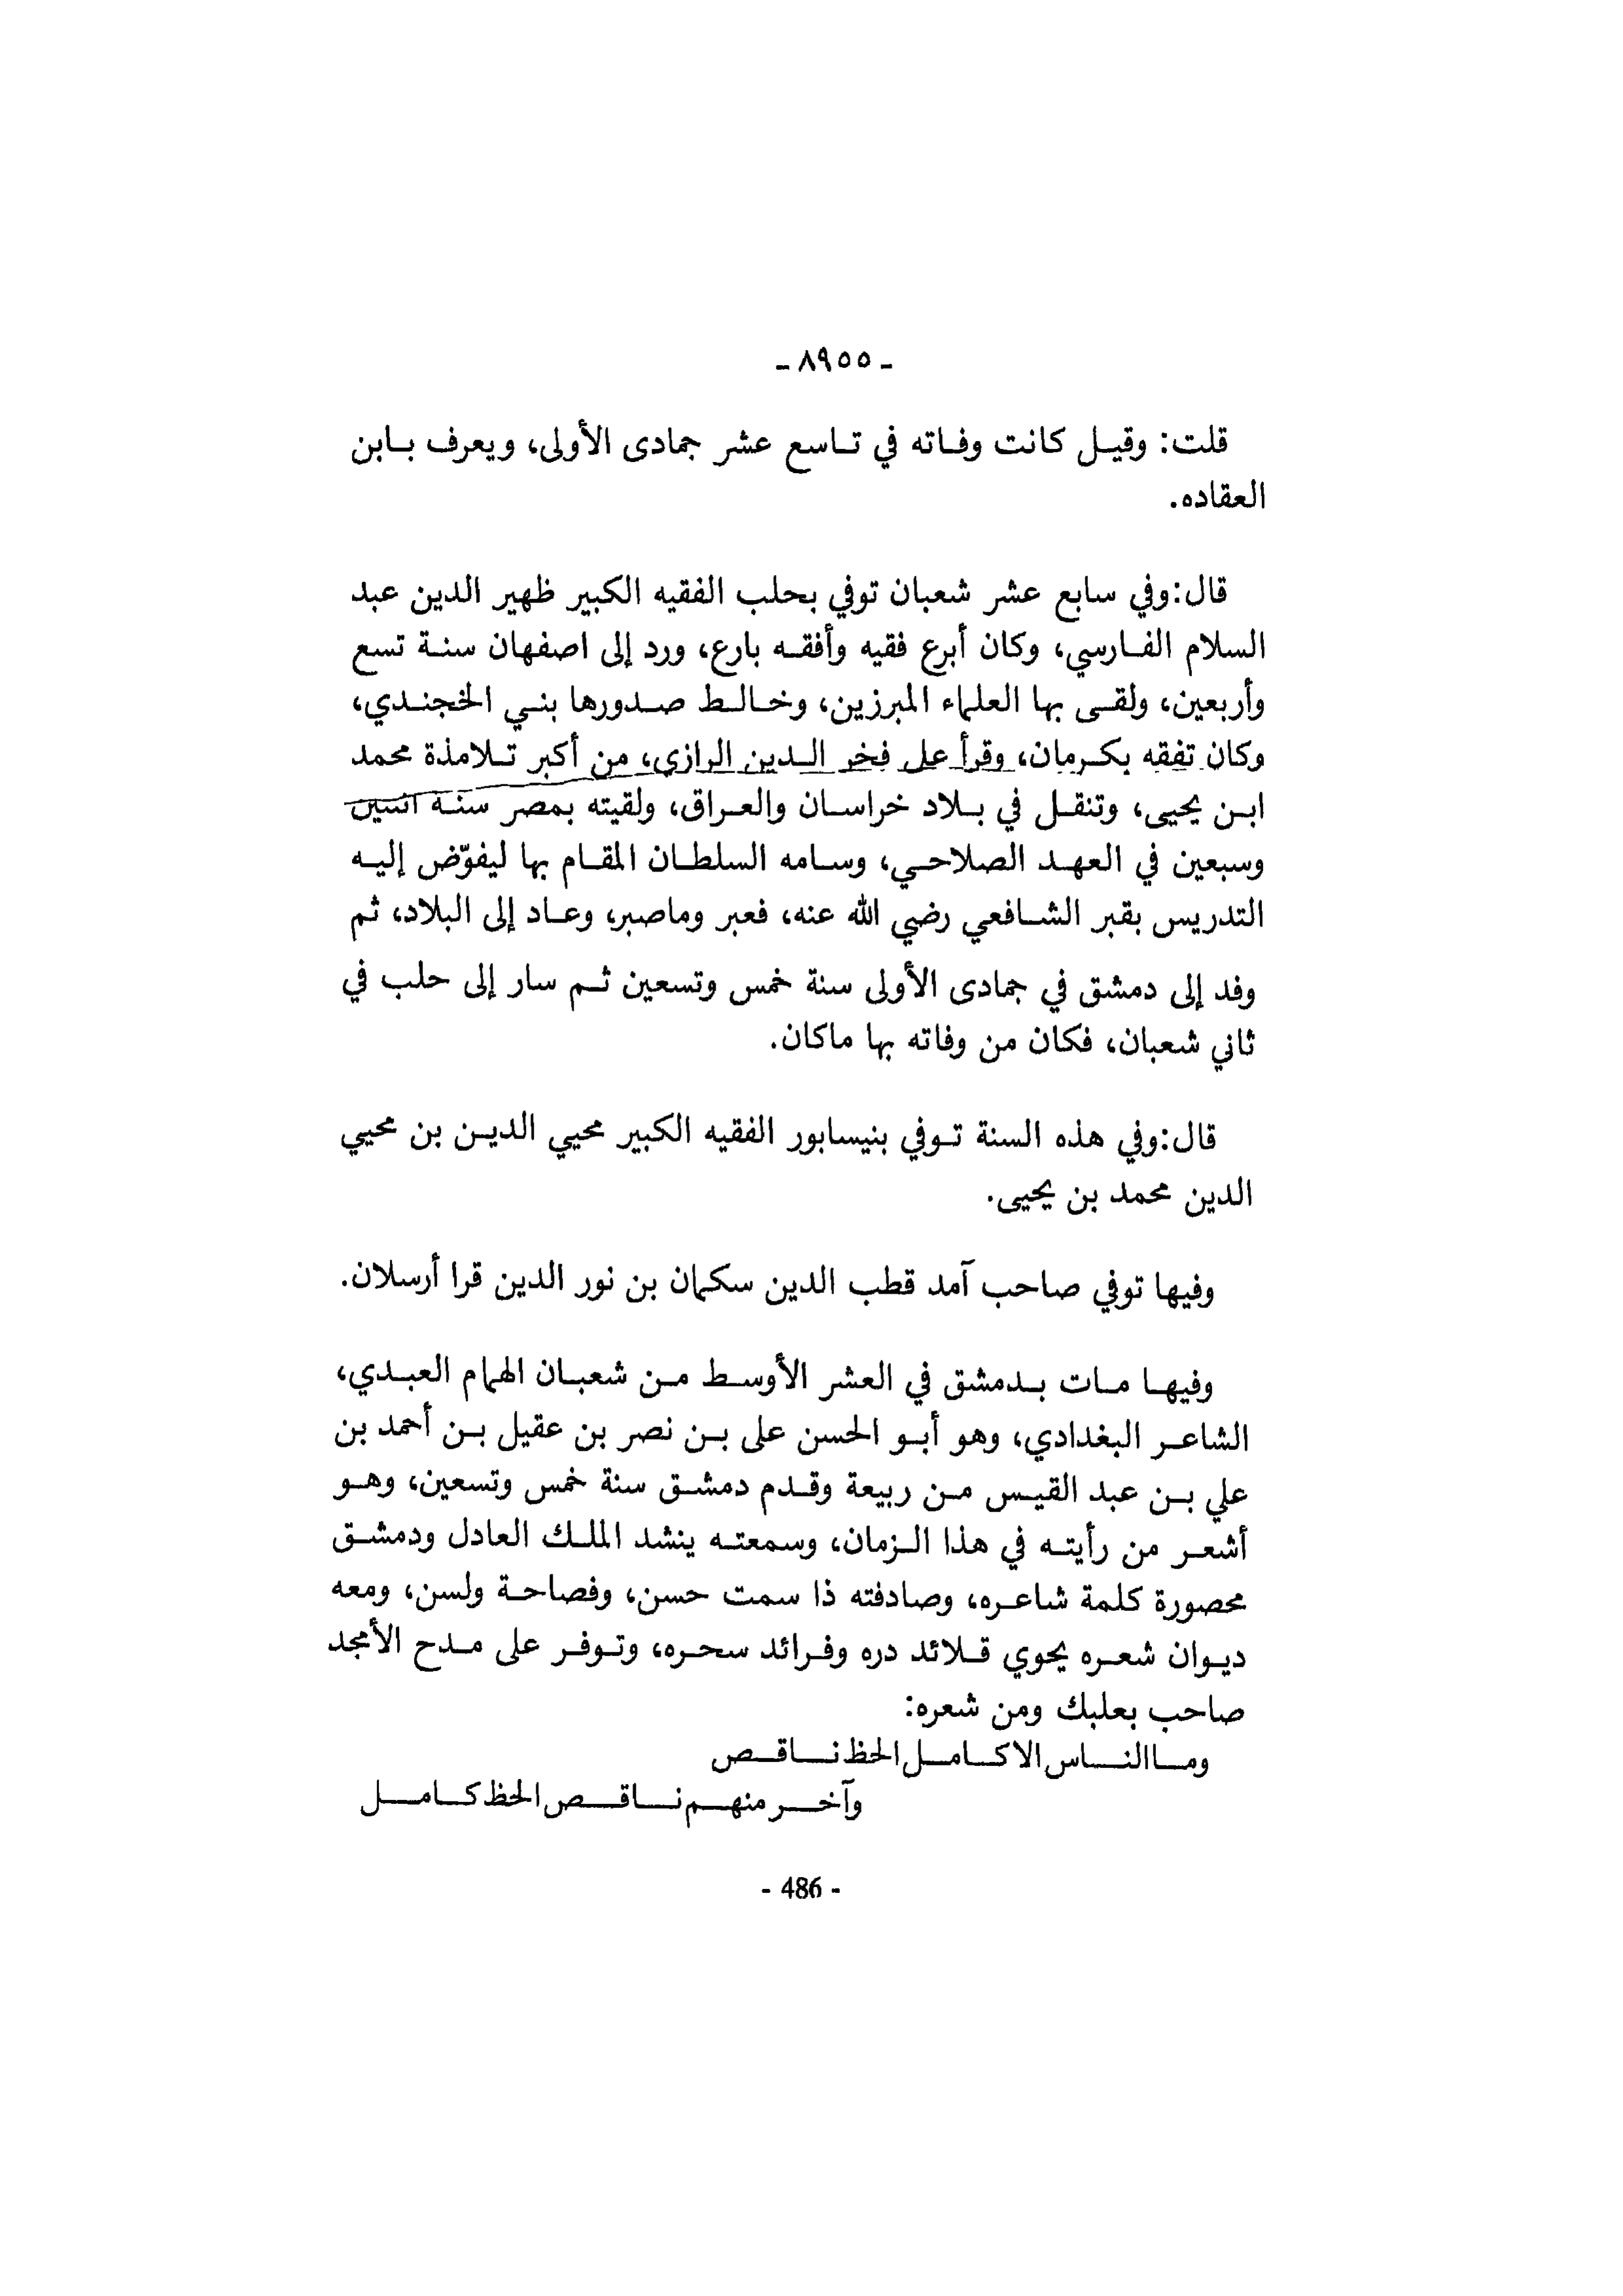 - ٨٩٥٥ -
قلت: وقيل كانت وفاته في تاسع عشر جمادى الأولى، ويعرف بابن
العقاده.
قال:وفي سابع عشر شعبان توفي بحلب الفقيه الكبير ظهير الدين عبد
السلام الفارسي، وكان أبرع فقيه وأفقه بارع، ورد إلى اصفهان سنة تسع
وأربعين، ولقى بها العلماء المبرزين، وخالط صدورها بني الخجندي،
وكان تفقه بكرمان، وقرأ على فخر الدين الرازي، من أكبر تلامذة محمد
ابن يحيى، وتنقل في بلاد خراسان والعراق، ولقيته بمصر سنة اثنتين
وسبعين في العهد الصلاحي، وسامه السلطان المقام بها ليفوّض إليه
التدريس بقبر الشافعي رضي الله عنه، فعبر وماصبر، وعاد إلى البلاد، ثم
وفد إلى دمشق في جمادى الأولى سنة خمس وتسعين ثم سار إلى حلب في
ثاني شعبان، فكان من وفاته بها ماكان.
قال:وفي هذه السنة توفي بنيسابور الفقيه الكبير محيي الدين بن محيي
الدين محمد بن يحيى.
وفيها توفي صاحب آمد قطب الدين سكمان بن نور الدين قرا أرسلان.
وفيها مات بدمشق في العشر الأوسط من شعبان الهمام العبدي،
الشاعر البغدادي، وهو أبو الحسن على بن نصر بن عقيل بن أحمد بن
علي بن عبد القيس من ربيعة وقدم دمشق سنة خمس وتسعين، وهو
أشعر من رأيته في هذا الزمان، وسمعته ينشد الملك العادل ودمشق
محصورة كلمة شاعره، وصادفته ذا سمت حسن، وفصاحة ولسن، ومعه
ديوان شعره يحوي قلائد دره وفرائد سحره، وتوفر على مدح الأمجد
صاحب بعلبك ومن شعره:
وما الناس الا كامل الحظ ناقص
وآخر منهم ناقص الحظ كامل
- 486 -